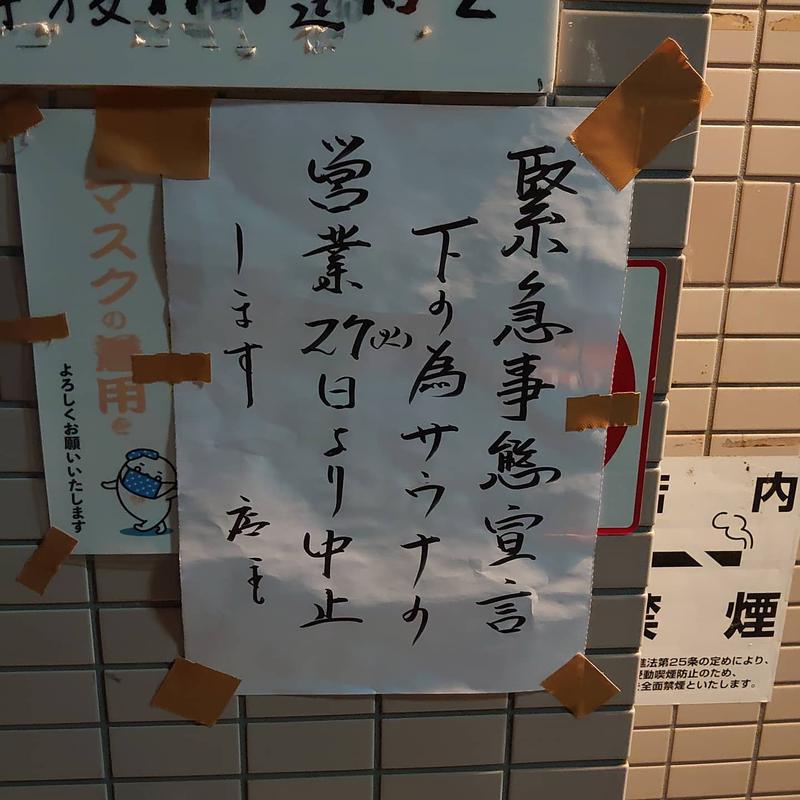 緊急事態宣言
下の為サウナの
営業27(火)日より中止
します 店主
マスクの着用を
よろしくお願いいたします
内
禁煙
法第25条の定めにより、
受動喫煙防止のため、
全面禁煙といたします。